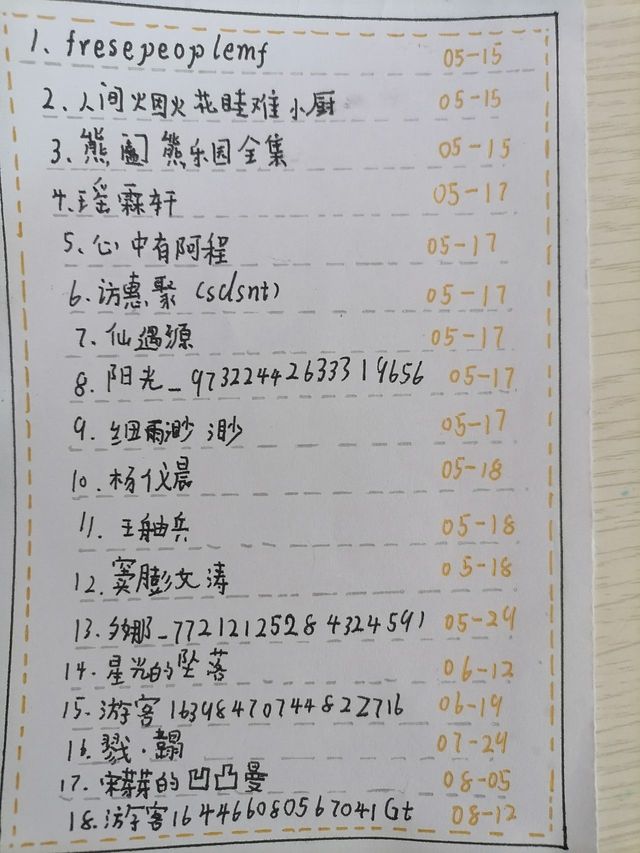 1、fresepeoplemf 05-15
2、人间火因火花哇难小厨 05-15
3、熊 熊乐园全集 05-15
4、瑶霖轩 05-17
5、心中有阿程 05-17
6、访惠聚(sdsnt) 05-17
7、仙遇源 05-17
8、阳光_9732244263331 9656 05-17
9、细雨渺渺 05-17
10、杨仪晨 05-18
11、王舳兵 05-18
12、窦膨文涛 05-18
13、多娜_7721212528 4324591 05-29
14、星光的坠落 06-12
15、游客1639847074482Z716 06-19
16、戮· 07-29
17、芽芽的凹凸曼 08-05
18、游客1644660805 67041Gt 08-12